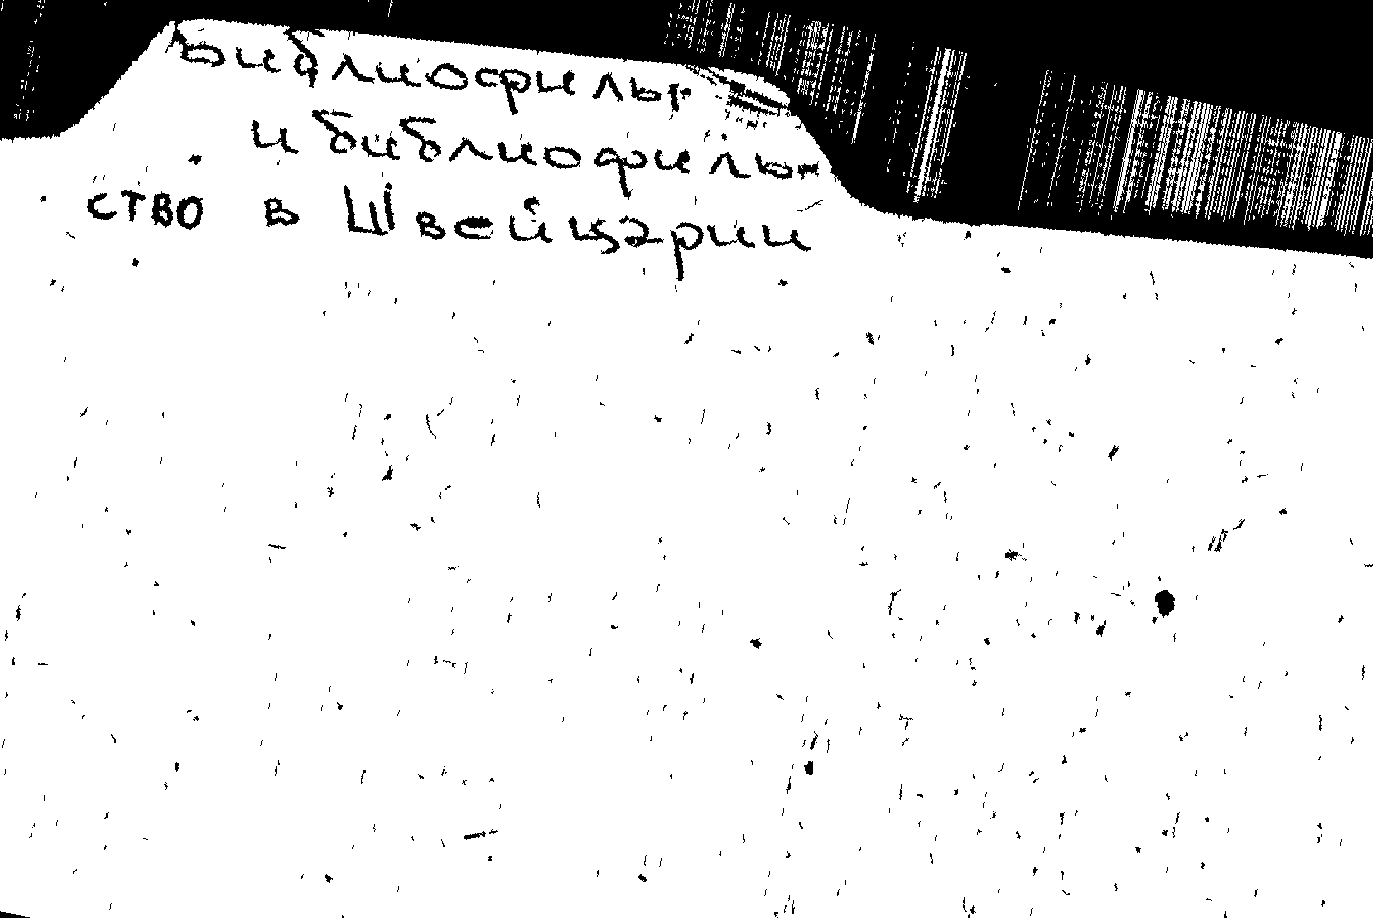 Библиофилы
и библиофильн
ство в Швейцарии